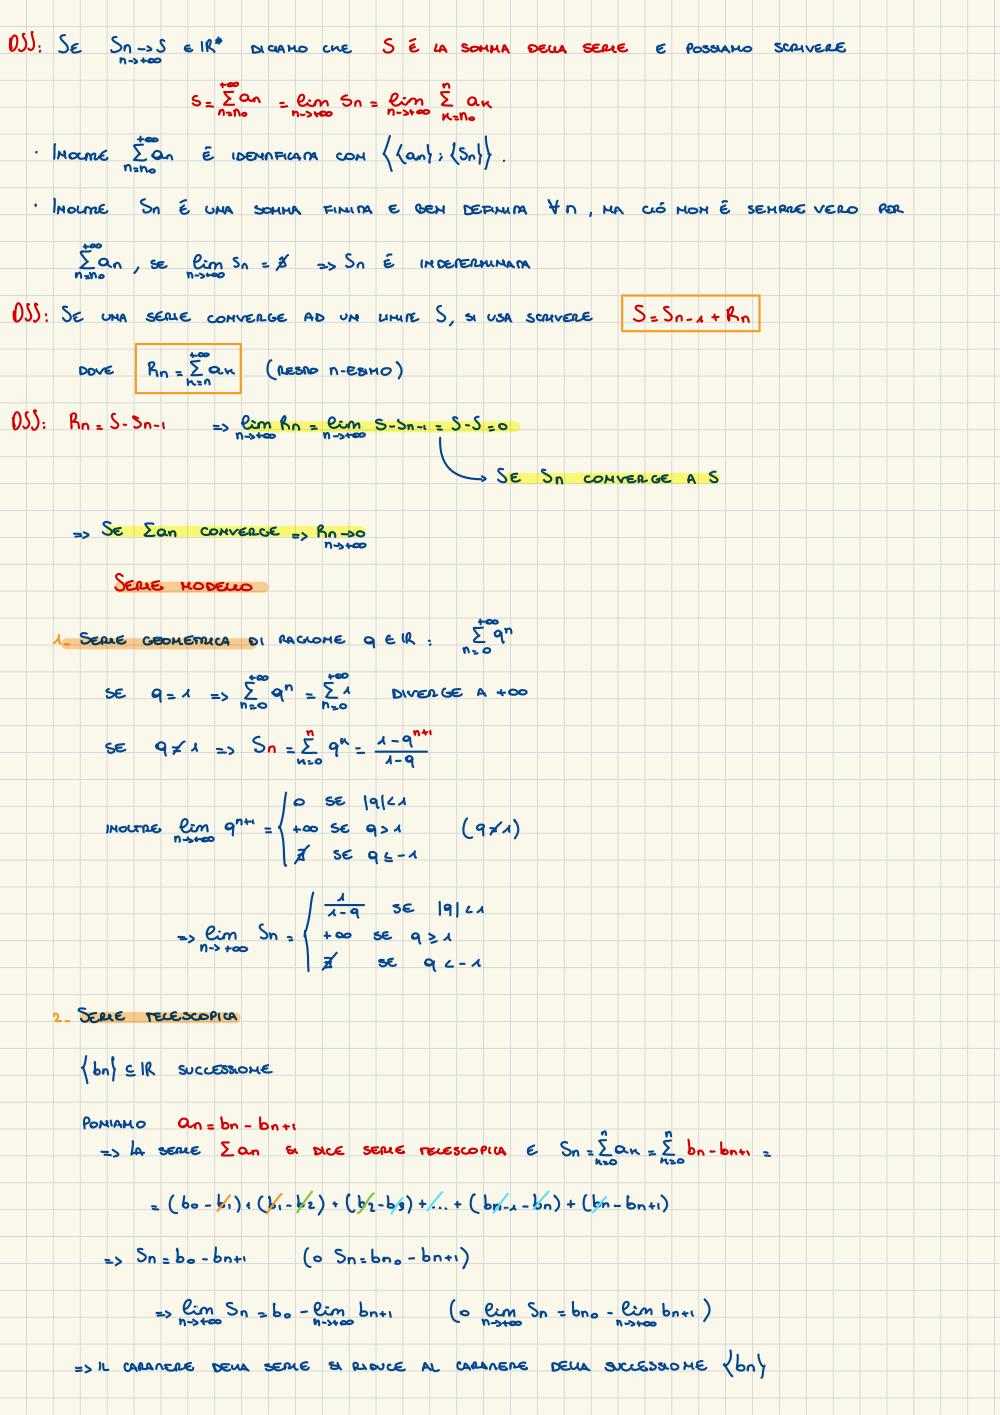 OSS: SE Sn → S ∈ ℝ* DICIAMO CHE S È LA SOMMA DELLA SERIE E POSSIAMO SCRIVERE
n→+∞
S = ∑_{n=n₀}^{+∞} an = lim_{n→+∞} Sn = lim_{n→+∞} ∑_{k=n₀}^{n} ak
· INOLTRE ∑_{n=n₀}^{+∞} an È IDENTIFICATA CON {{an}; {Sn}}.
· INOLTRE Sn È UNA SOMMA FINITA E BEN DEFINITA ∀n, MA CIÓ NON È SEMPRE VERO PER
∑_{n=n₀}^{+∞} an, SE lim_{n→+∞} Sn = ∄ => Sn È INDETERMINATA
OSS: SE UNA SERIE CONVERGE AD UN LIMITE S, SI USA SCRIVERE S = Sn-1 + Rn
DOVE Rn = ∑_{k=n}^{+∞} ak (RESTO n-ESIMO)
OSS: Rn = S - Sn-1 => lim_{n→+∞} Rn = lim_{n→+∞} S - Sn-1 = S - S = 0
→ SE Sn CONVERGE A S
=> SE ∑an CONVERGE => Rn → 0
n→+∞
SERIE MODELLO
1- SERIE GEOMETRICA DI RAGIONE q ∈ ℝ : ∑_{n=0}^{+∞} qⁿ
SE q = 1 => ∑_{n=0}^{+∞} qⁿ = ∑_{n=0}^{+∞} 1 DIVERGE A +∞
SE q ≠ 1 => Sn = ∑_{k=0}^{n} q^k = (1 - q^{n+1}) / (1 - q)
0 SE |q| < 1
INOLTRE lim_{n→+∞} q^{n+1} = { +∞ SE q > 1 (q ≠ 1)
∄ SE q ≤ -1
1/(1-q) SE |q| < 1
=> lim_{n→+∞} Sn = { +∞ SE q ≥ 1
∄ SE q < -1
2- SERIE TELESCOPICA
{bn} ⊆ ℝ SUCCESSIONE
PONIAMO an = bn - bn+1
=> LA SERIE ∑an SI DICE SERIE TELESCOPICA E Sn = ∑_{k=0}^{n} ak = ∑_{k=0}^{n} bn - bn+1 =
= (b0 - b1) + (b1 - b2) + (b2 - b3) + ... + (bn-1 - bn) + (bn - bn+1)
=> Sn = b0 - bn+1 (O Sn = bn₀ - bn+1)
=> lim_{n→+∞} Sn = b0 - lim_{n→+∞} bn+1 (O lim_{n→+∞} Sn = bn₀ - lim_{n→+∞} bn+1)
=> IL CARATTERE DELLA SERIE SI RIDUCE AL CARATTERE DELLA SUCCESSIONE {bn}